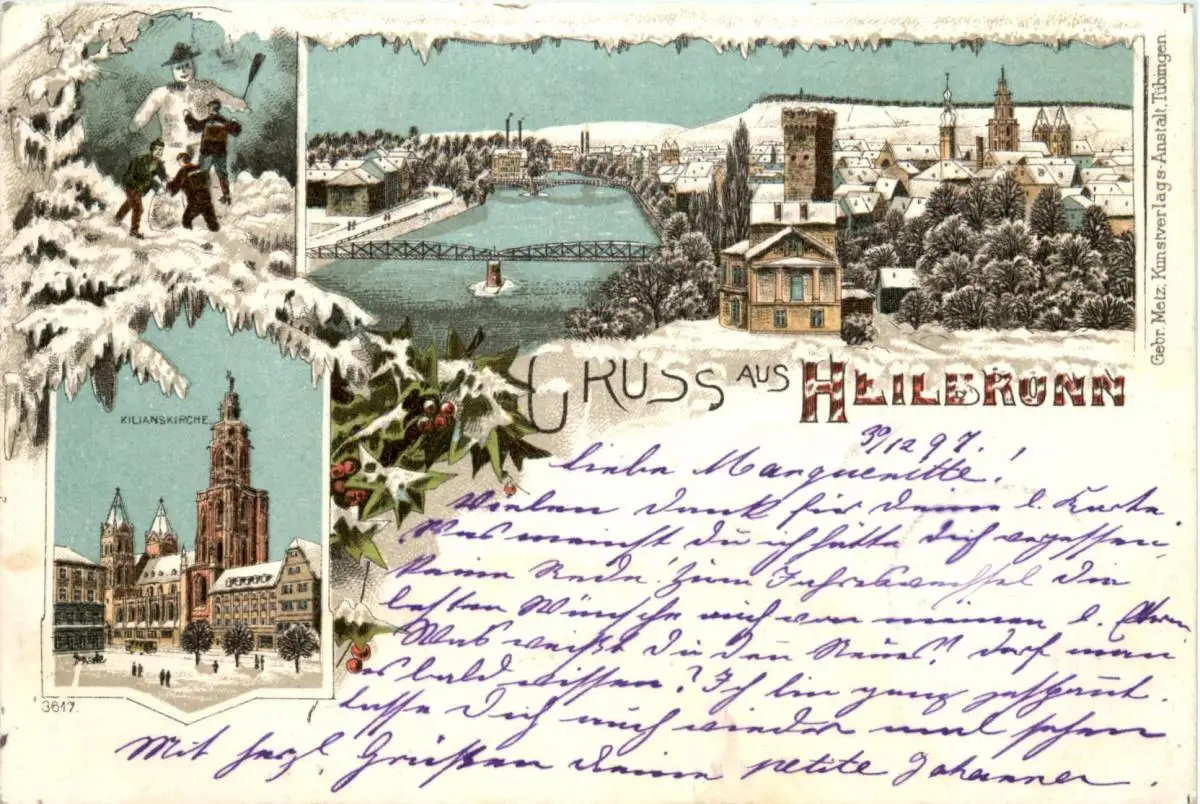 Gebr. Metz, Kunstverlags-Anstalt, Tübingen.
GRUSS AUS HEILBRONN
KILIANSKIRCHE.
30/12 97.
Liebe Margueritte!
Vielen Dank für Deine l. Karte.
Was meinst Du ich hätte Dich vergessen,
keine Rede. Zum Jahreswechsel die
besten Wünsche auch von meinen l. Eltern
Was weißt Du denn Neues? darf man
es bald wissen? Ich bin ganz gespannt.
Lasse Dich auch wieder mal sehen
Mit herzl. Grüßen Deine petite Johanna.
3617.